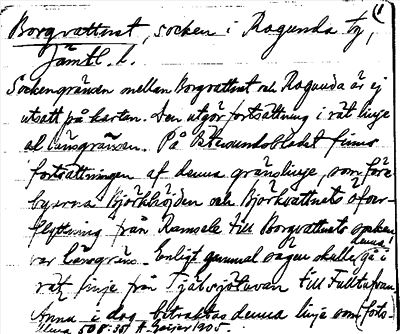 1
Borgvattnet, socken i Ragunda tg,
Jämtl. l.
Sockengränsen mellan Borgvattnet och Ragunda är ej
utsatt på kartan. Den utgör fortsättning i rät linje
af länsgränsen. På Östersundsbladet finns
fortsättningen af denna gränslinje, som före
byarna Björkhöjden och Björkvattnets öfver-
flyttning från Ramsele till Borgvattnets socken
var länsgräns. Enligt gammal sägen skulle denna gå i
rät linje från till
Ännu i dag betraktas denna linje som (forts.
50 8:35) H. Geijer 1905.